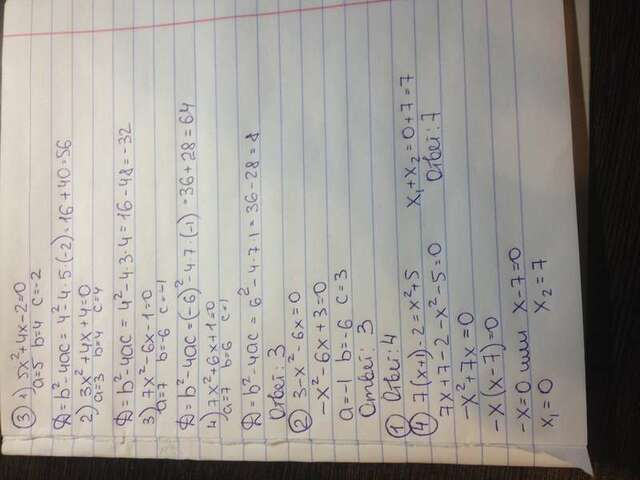 ③ 1) 5x²+4x-2=0
a=5 b=4 c=-2
D=b²-4ac=4²-4·5·(-2)=16+40=56
2) 3x²+4x+4=0
a=3 b=4 c=4
D=b²-4ac=4²-4·3·4=16-48=-32
3) 7x²-6x-1=0
a=7 b=-6 c=-1
D=b²-4ac=(-6)²-4·7·(-1)=36+28=64
4) 7x²+6x+1=0
a=7 b=6 c=1
D=b²-4ac=6²-4·7·1=36-28=8
Ответ: 3
② 3-x²-6x=0
-x²-6x+3=0
a=-1 b=-6 c=3
Ответ: 3
① Ответ: 4
④ 7(x+1)-2=x²+5
7x+7-2-x²-5=0
-x²+7x=0
-x(x-7)=0
-x=0 или x-7=0
x₁=0 x₂=7
x₁+x₂=0+7=7
Ответ: 7